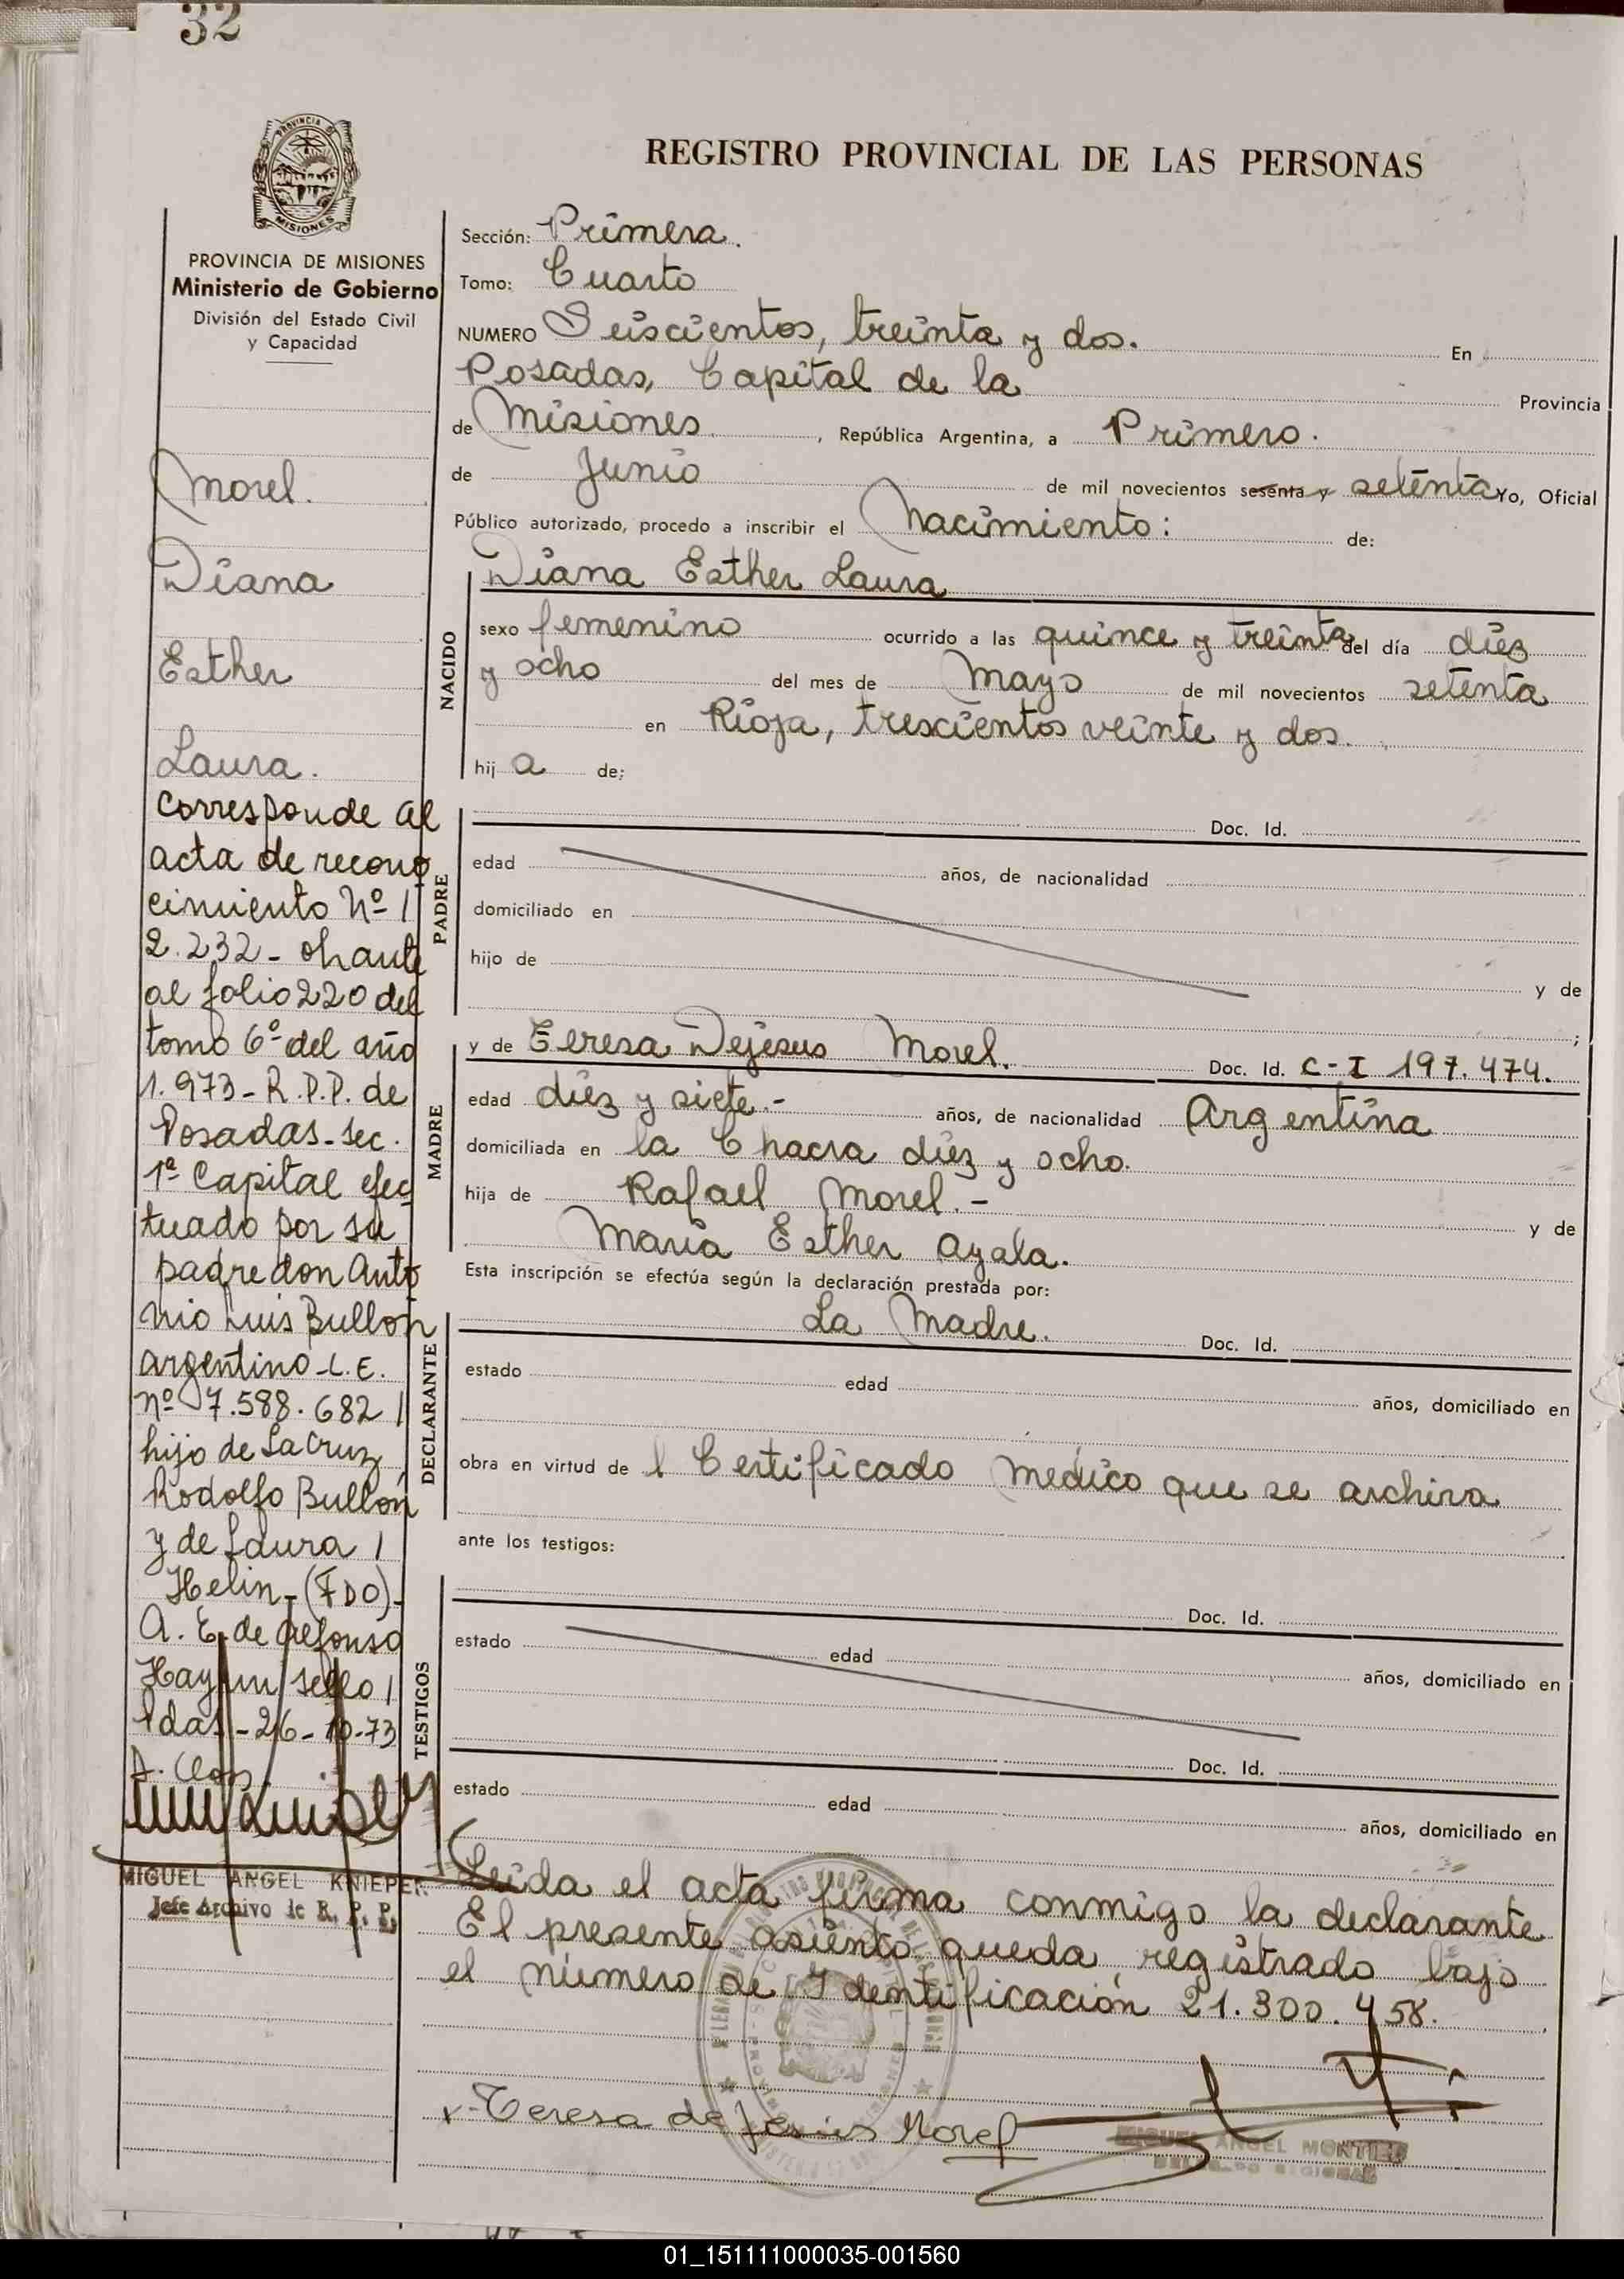 32
REGISTRO PROVINCIAL DE LAS PERSONAS
PROVINCIA DE MISIONES
PROVINCIA DE MISIONES
Ministerio de Gobierno
División del Estado Civil
y Capacidad
Morel.
Diana
Esther
Laura.
Corresponde al
acta de recono
cimiento Nº /
2.232 - obrante
al folio 220 del
tomo 6º del año
1.973 - R.P.P. de
Posadas - Sec.
1ª Capital efec
tuado por su
padre don Anto
nio Luis Bullon
argentino - L.E.
nº 7.588.682 /
hijo de La Cruz
Rodolfo Bullón
y de Laura /
Helin - (FDO) -
A. E. de Alfonso
Hay un sello /
Pdas - 26 - 10 - 73
MIGUEL ANGEL KNIEPER
Jefe Archivo de R. P. P.
Sección: Primera.
Tomo: Cuarto
NUMERO Seiscientos, treinta y dos. En
Posadas, Capital de la Provincia
de Misiones, República Argentina, a Primero.
de Junio de mil novecientos sesenta y setenta Yo, Oficial
Público autorizado, procedo a inscribir el Nacimiento: de:
NACIDO
Diana Esther Laura
sexo femenino ocurrido a las quince y treinta del día diez
y ocho del mes de Mayo de mil novecientos setenta
en Rioja, trescientos veinte y dos.
hij a de:
PADRE
Doc. Id.
edad años, de nacionalidad
domiciliado en
hijo de y de
;
MADRE
y de Teresa Dejesus Morel. Doc. Id. C-I 197.474.
edad diez y siete.- años, de nacionalidad Argentina
domiciliada en la Chacra diez y ocho.
hija de Rafael Morel.- y de
Maria Esther Ayala.
Esta inscripción se efectúa según la declaración prestada por:
DECLARANTE
La Madre. Doc. Id.
estado edad años, domiciliado en
obra en virtud de l Certificado Medico que se archiva
ante los testigos:
TESTIGOS
Doc. Id.
estado edad años, domiciliado en
Doc. Id.
estado edad años, domiciliado en
Leida el acta firma conmigo la declarante
El presente asiento queda registrado bajo
el número de Identificación 21.300.458.
x Teresa de Jesús Morel
MIGUEL ANGEL MONTIEL
01_151111000035-001560